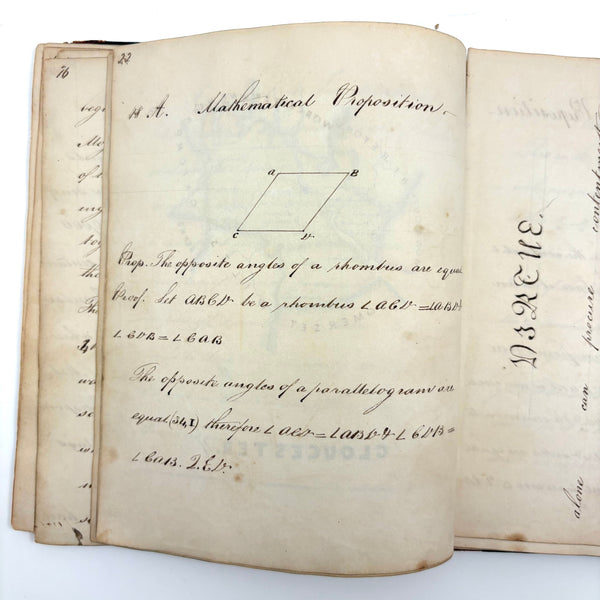 76
beg
of t
eng
tog
the
Th
wa
so
22
18 A. Mathematical Proposition
A B
C D
Prop. The opposite angles of a rhombus are equal
Proof. Let ABCD be a rhombus ∠ACD = ∠ABD &
∠CDB = ∠CAB
The opposite angles of a parallelogram are
equal (34,I) therefore ∠ACD = ∠ABD & ∠CDB =
∠CAB. Q.E.D.
GLOUCESTER
VIRTUE.
alone can procure content